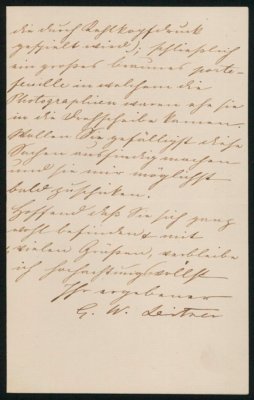 die durch Kehlkopfdruck
gespielt wird); schliesslich
ein großes braunes porte-
feuille in welchem die
Photographien waren ehe sie
in die Drehscheibe kamen.
Wollen Sie gefälligst diese
Sachen ausfindig machen
und sie mir möglichst
bald zuschicken.
Hoffend daß Sie sich ganz
wohl befinden & mit
vielen Grüßen, verbleibe
ich hochachtungsvollst
Ihr ergebener
G. W. Leitner